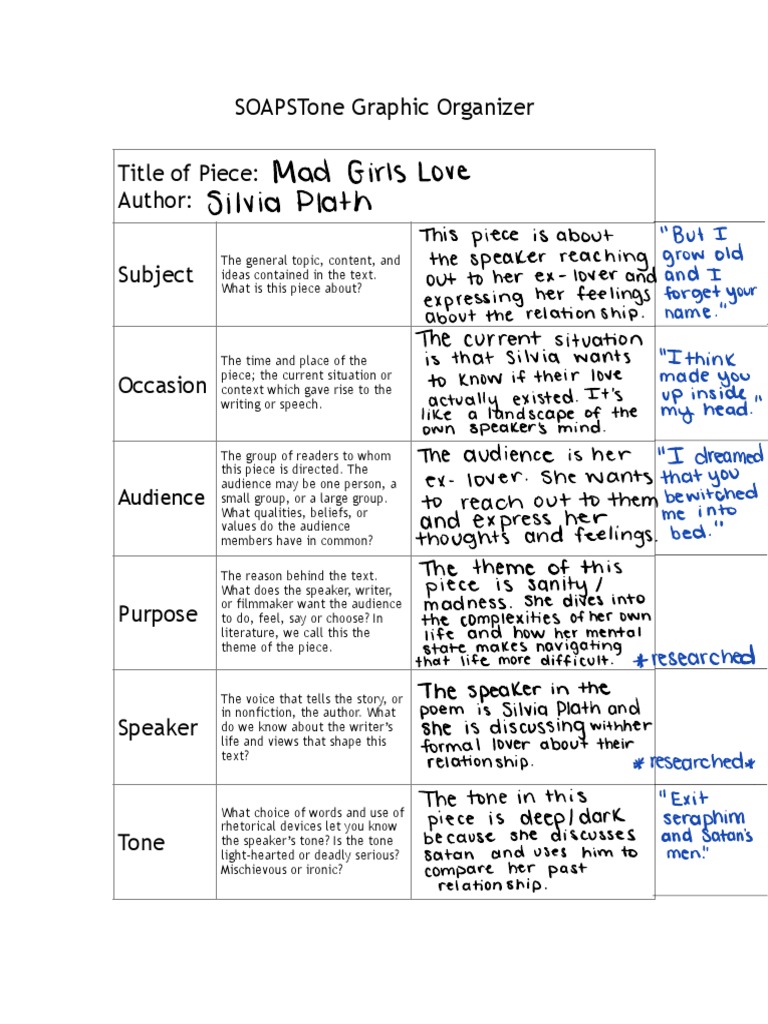 SOAPSTone Graphic Organizer
Title of Piece: Mad Girls Love
Author: Silvia Plath
Subject
The general topic, content, and
ideas contained in the text.
What is this piece about?
This piece is about
the speaker reaching
out to her ex-lover and
expressing her feelings
about the relationship.
"But I
grow old
and I
forget your
name."
Occasion
The time and place of the
piece; the current situation or
context which gave rise to the
writing or speech.
The current situation
is that Silvia wants
to know if their love
actually existed. It's
like a landscape of the
own speaker's mind.
"I think
made you
up inside
my head."
Audience
The group of readers to whom
this piece is directed. The
audience may be one person, a
small group, or a large group.
What qualities, beliefs, or
values do the audience
members have in common?
The audience is her
ex-lover. She wants
to reach out to them
and express her
thoughts and feelings.
"I dreamed
that you
bewitched
me into
bed."
Purpose
The reason behind the text.
What does the speaker, writer,
or filmmaker want the audience
to do, feel, say or choose? In
literature, we call this the
theme of the piece.
The theme of this
piece is sanity/
madness. She dives into
the complexities of her own
life and how her mental
state makes navigating
that life more difficult.
*researched
Speaker
The voice that tells the story, or
in nonfiction, the author. What
do we know about the writer's
life and views that shape this
text?
The speaker in the
poem is Silvia Plath and
she is discussing with her
formal lover about their
relationship.
*researched*
Tone
What choice of words and use of
rhetorical devices let you know
the speaker's tone? Is the tone
light-hearted or deadly serious?
Mischievous or ironic?
The tone in this
piece is deep/dark
because she discusses
satan and uses him to
compare her past
relationship.
"Exit
seraphim
and Satan's
men."